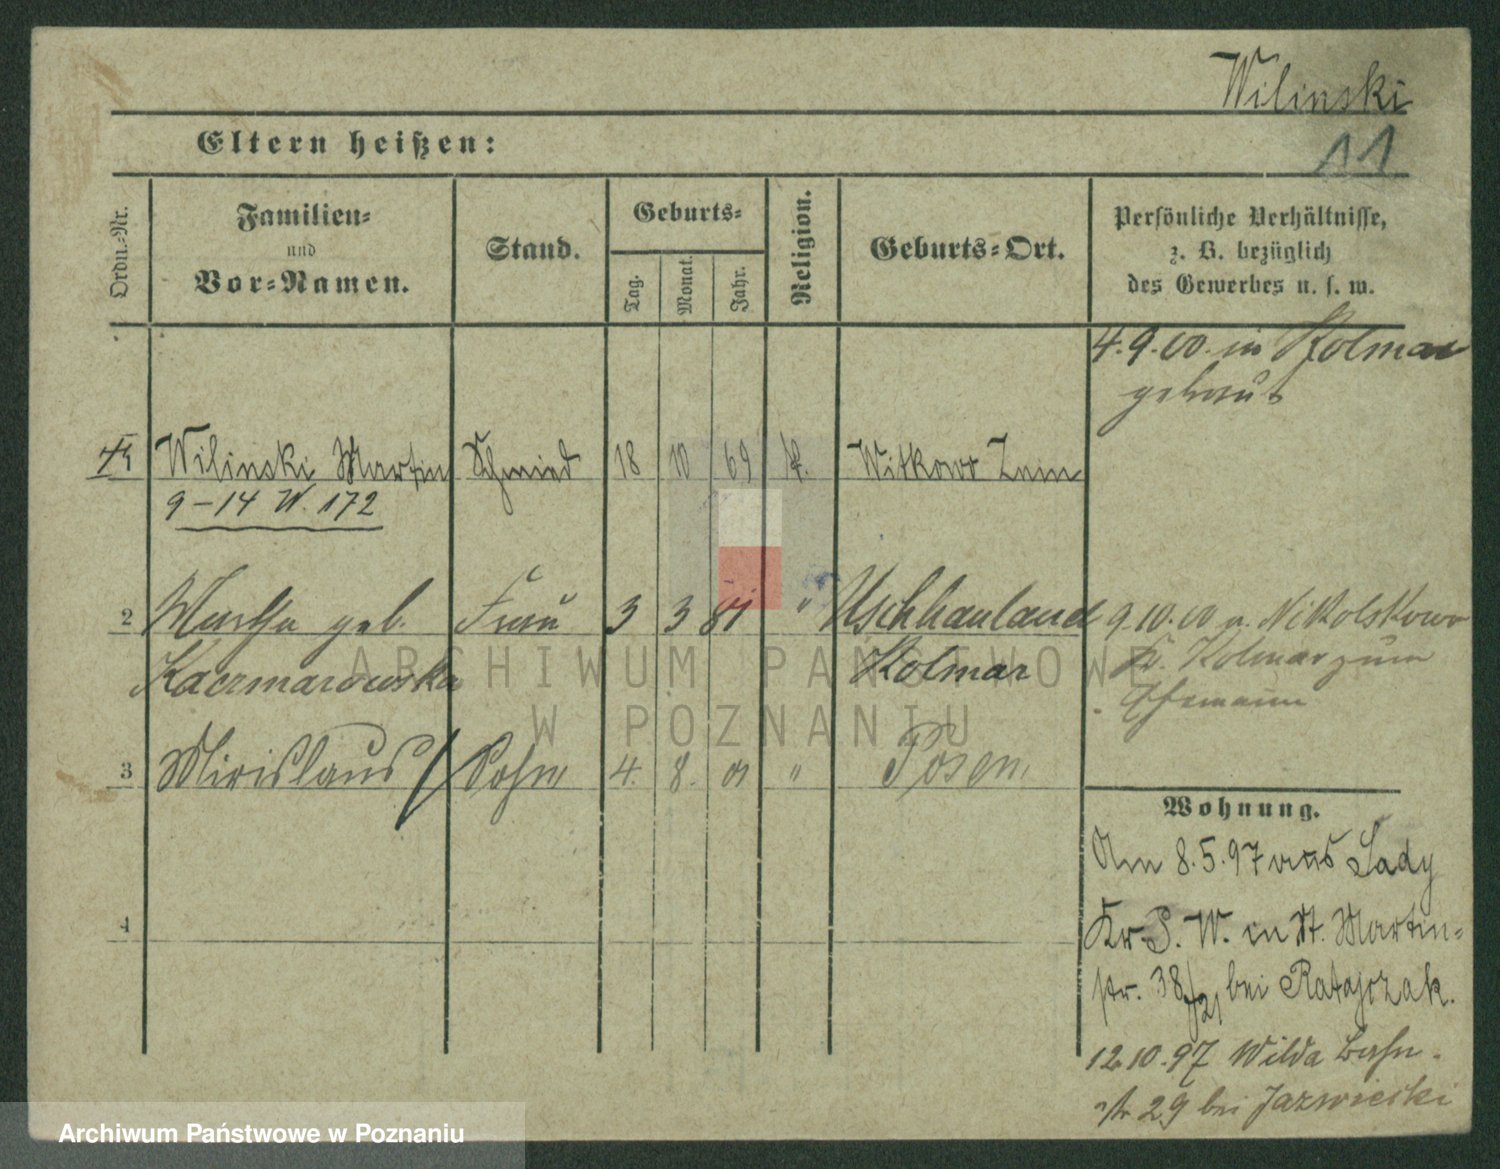 Wilinski
Eltern heißen:
11
Ordn.-Nr.
Familien-
und
Vor-Namen.
Stand.
Geburts-
Tag.
Monat.
Jahr.
Religion.
Geburts-Ort.
Persönliche Verhältnisse,
z. B. bezüglich
des Gewerbes u. s. w.
4.9.00. in Kolmar
getraut
Wilinski Martin Schmied 18 10 69 k. Witkowo Znin
9-14 W. 172
2 Martha geb. Frau 3 3 81 " Uschhauland
Kaczmarowska Kolmar
9.10.00 v. Nikolskowo
Kr. Kolmar zum
Ehemann
3 Mirislaus Sohn 4. 8. 01 " Posen
Wohnung.
Am 8.5.97 aus Lady
Kr. P. W. in St. Martin-
str. 38 bei Ratajczak.
4
12.10.97 Wilda Bahn-
str 29 bei Jazwiecki
ARCHIWUM PAŃSTWOWE
W POZNANIU
Archiwum Państwowe w Poznaniu